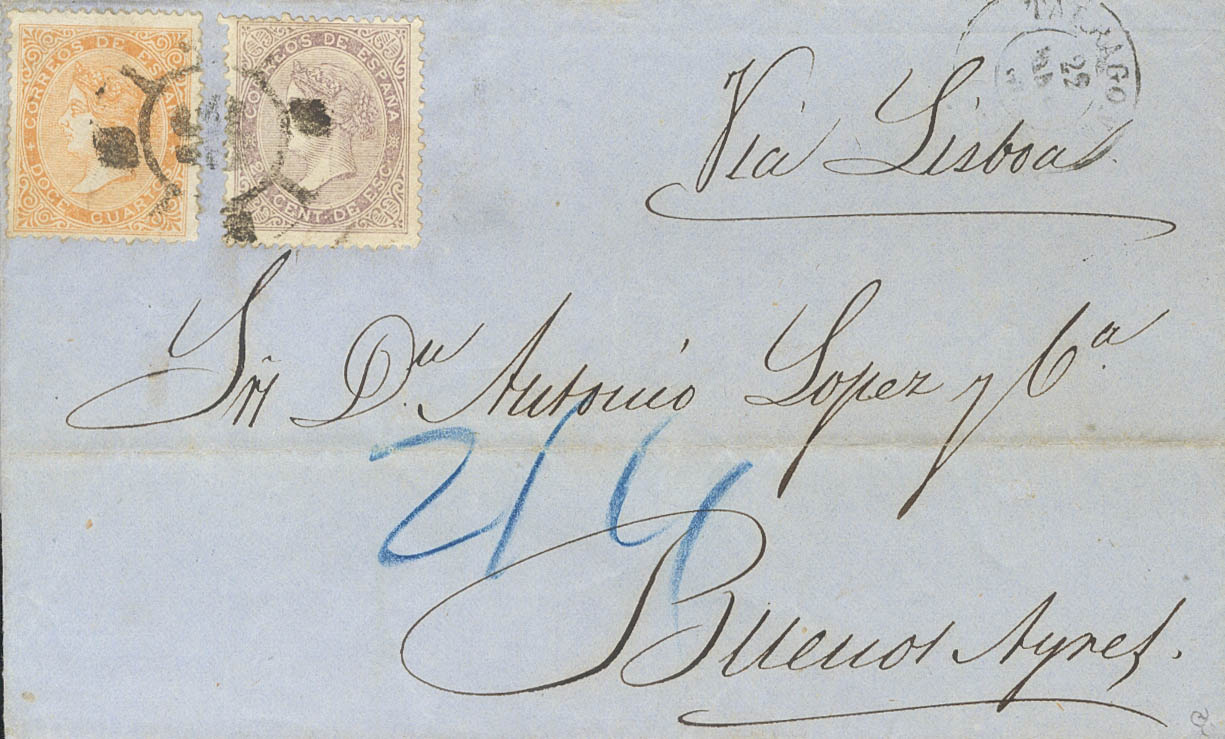 CORREOS DE ESPAÑA
DOCE CUARTOS
CORREOS DE ESPAÑA
CENT. DE ESCO
TARRAGONA
22
Via Lisboa
Sr. Dn. Antonio Lopez y Ca
214
Buenos Ayres.